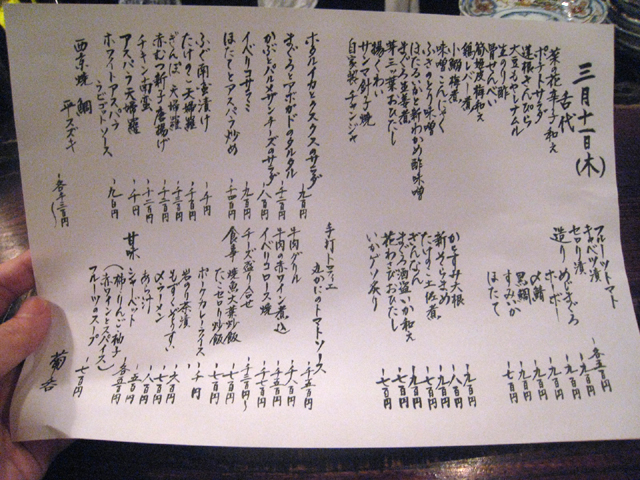 三月十一日(木)
舌代
菜の花辛子和え
ポテトサラダ
道根きんぴら
大豆もやしナムル
生のり酢
骨せんべい
筋子皮梅和え
鶏レバー煮
小鯛梅煮
味噌こんにゃく
ふきのとう味噌
ほたるいかと新わかめ酢味噌
まぐろ生姜煮
芽三つ葉おひたし
揚くわい
サンマ餃子焼
自家製チャンジャ
ホタルイカとクスクスのサラダ ~九百円
まぐろとアボガドのタルタル ~千二百円
かぶとパルメザンチーズのサラダ ~八百円
イベリコサラミ ~九百円
ほたてとアスパラ炒め ~千四百円
ふぐ南蛮漬け ~千円
たけのこ天婦羅 ~千百円
ぎんぽ天婦羅 ~千三百円
赤むつ新子唐揚げ ~千三百円
チキン南蛮 ~千二百円
アスパラ天婦羅 ~千円
ホワイトアスパラ
ラビゴットソース ~九百円
西京焼 鯛
平スズキ ~各千三百円
フルーツトマト
キャベツ漬
セロリ漬 ~各五百円
造り めじまぐろ ~九百円
ホーボー ~九百円
〆鯖 ~九百円
黒鯛 ~九百円
すみいか ~九百円
ほたて ~九百円
からすみ大根 ~九百円
新めくらきめ ~八百円
たけのこ土佐煮 ~九百円
ぎんなん ~七百円
まぐろ酒盗いか和え ~九百円
花わさびおひたし ~七百円
いかゲソ炙り ~七百円
手打トロフィエ
丸がにのトマトソース ~千五百円
牛肉グリル ~千八百円
牛肉の赤ワイン煮込 ~千七百円
イベリコロース焼 ~千七百円
チーズ盛り合せ ~千三百円~
食事 焼魚大葉炒飯 ~七百円
たこセロリ炒飯 ~七百円
ポークカレーライス ~千円
岩のりお茶漬 ~七百円
もずくぞうすい ~六百円
〆ラーメン ~八百円
あら汁 ~五百円
甘味 シャーベット
(柿、りんご、柚子
赤ワイン、スパイス) ~各五百円
フルーツのスープ ~七百円
菊吉